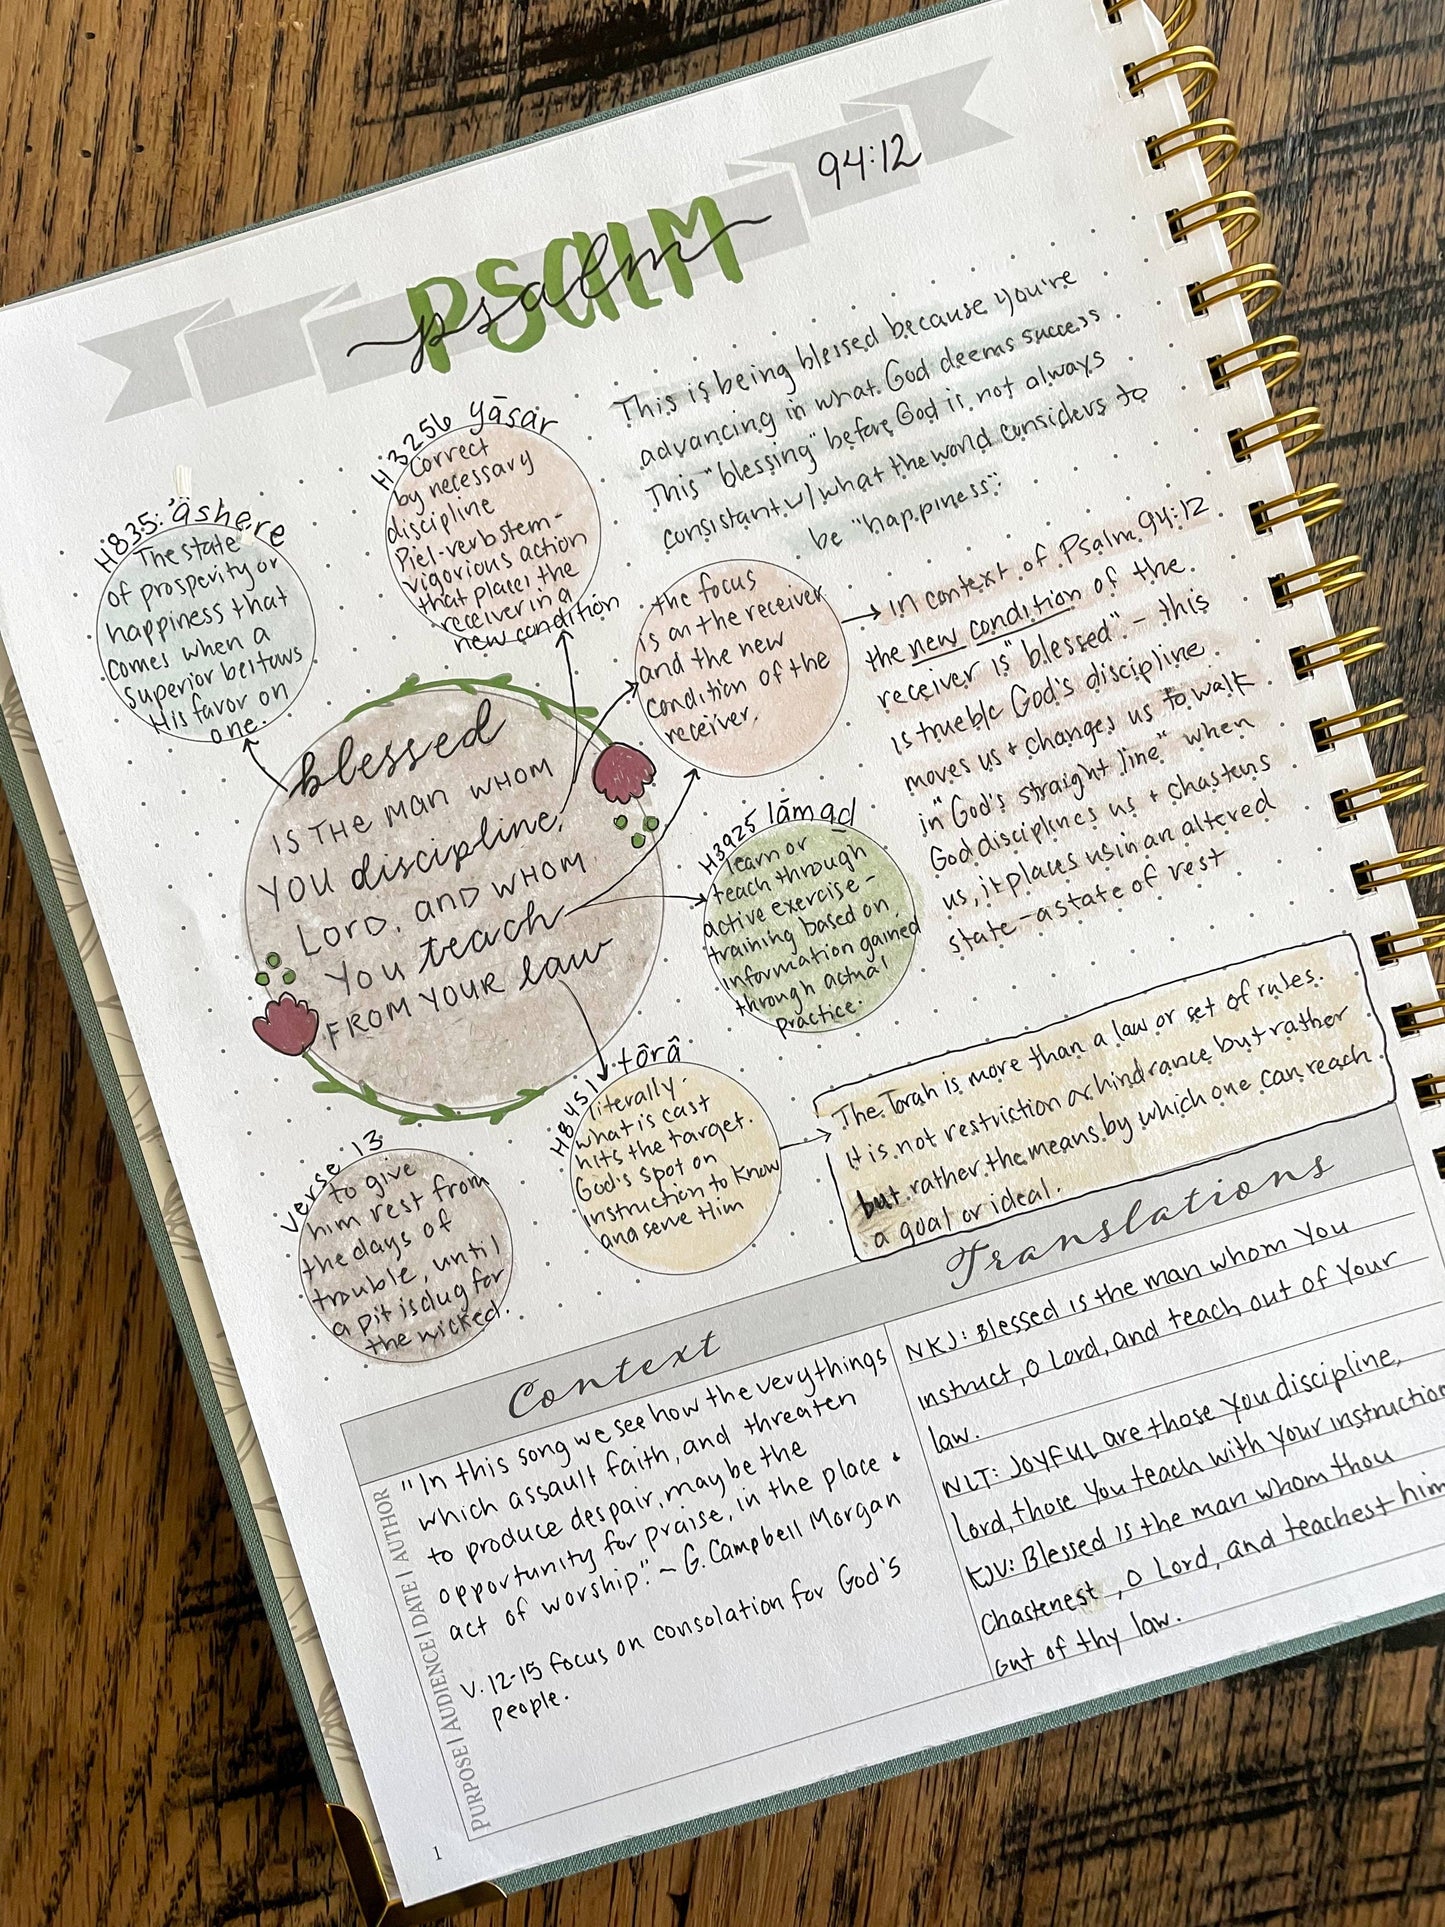 94:12
PSALM
psalm
This is being blessed because you're
advancing in what God deems success.
This "blessing" before God is not always
consistant w/ what the world considers to
be "happiness".
H3256 yāsar
Correct
by necessary
discipline
Piel-verb stem-
vigorious action
that places the
receiver in a
new condition
H835: 'ashere
The state
of prosperity or
happiness that
comes when a
Superior bestows
His favor on
one.
the focus
is on the receiver
and the new
condition of the
receiver.
in context of Psalm 94:12
the new condition of the
receiver is "blessed" - this
is true b/c God's discipline
moves us + changes us to walk
in "God's straight line" when
God disciplines us + chastens
us, it places us in an altered
state - a state of rest
blessed
IS THE MAN WHOM
YOU discipline,
LORD, AND WHOM
YOU teach
FROM YOUR law
H3925 lāmad
learn or
teach through
active exercise -
training based on
information gained
through actual
practice.
H8451 tôrâ
literally-
what is cast
hits the target.
God's spot on
instruction to know
and serve Him
The Torah is more than a law or set of rules.
It is not restriction or hindrance but rather
but rather the means by which one can reach
a goal or ideal.
verse 13
to give
him rest from
the days of
trouble, until
a pit is dug for
the wicked.
Context
PURPOSE | AUDIENCE | DATE | AUTHOR
"In this song we see how the very things
which assault faith, and threaten
to produce despair, may be the
opportunity for praise, in the place +
act of worship." ~ G. Campbell Morgan
V. 12-15 focus on consolation for God's
people.
Translations
NKJ: Blessed is the man whom You
instruct, O Lord, and teach out of Your
law.
NLT: Joyful are those you discipline,
Lord, those you teach with your instruction
KJV: Blessed is the man whom thou
Chastenest, O Lord, and teachest him
out of thy law.
1